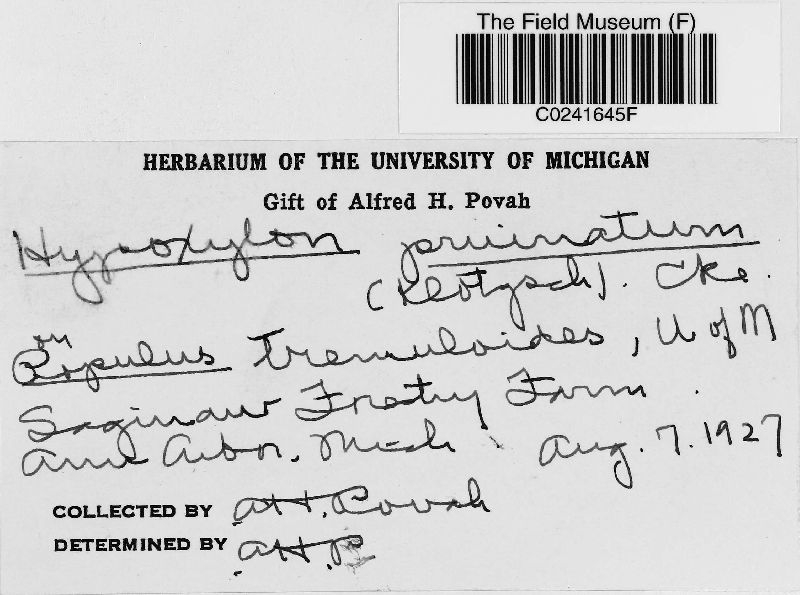 The Field Museum (F)
C0241645F
HERBARIUM OF THE UNIVERSITY OF MICHIGAN
Gift of Alfred H. Povah
Hypoxylon pruinatum
(Klotzsch). Cke.
on
Populus tremuloides, U of M
Saginaw Forestry Farm.
Ann Arbor, Mich. Aug. 7. 1927
COLLECTED BY A.H. Povah
DETERMINED BY A.H.P.